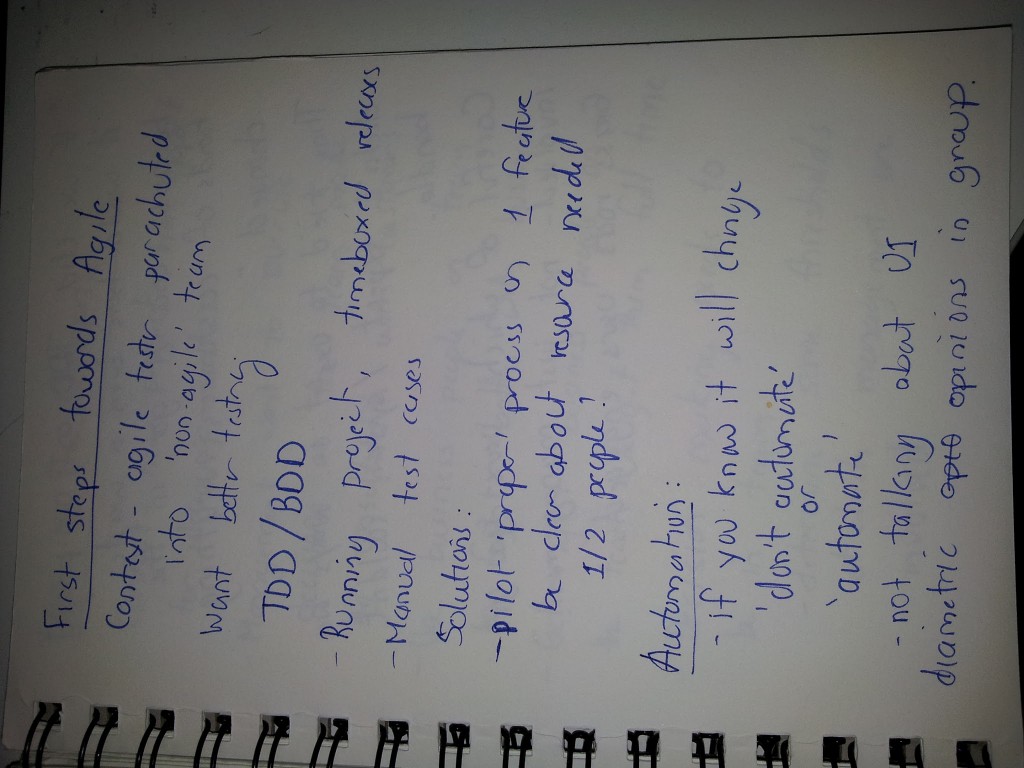 First steps towards Agile
Context - agile tester parachuted
into 'non-agile' team
Want better testing
TDD/BDD
- Running project, timeboxed releases
- Manual test cases
Solutions:
- pilot 'proper' process on 1 feature
be clear about resource needed
1/2 people?
Automation:
- if you know it will change
'don't automate'
or
'automate'
- not talking about UI
diametric opinions in group.